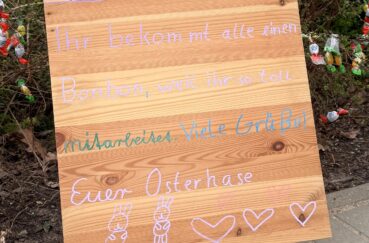 Ihr bekommt alle einen
Bonbos, weil ihr so toll
mitarbeitet. Viele Grüße!
Euer Osterhase